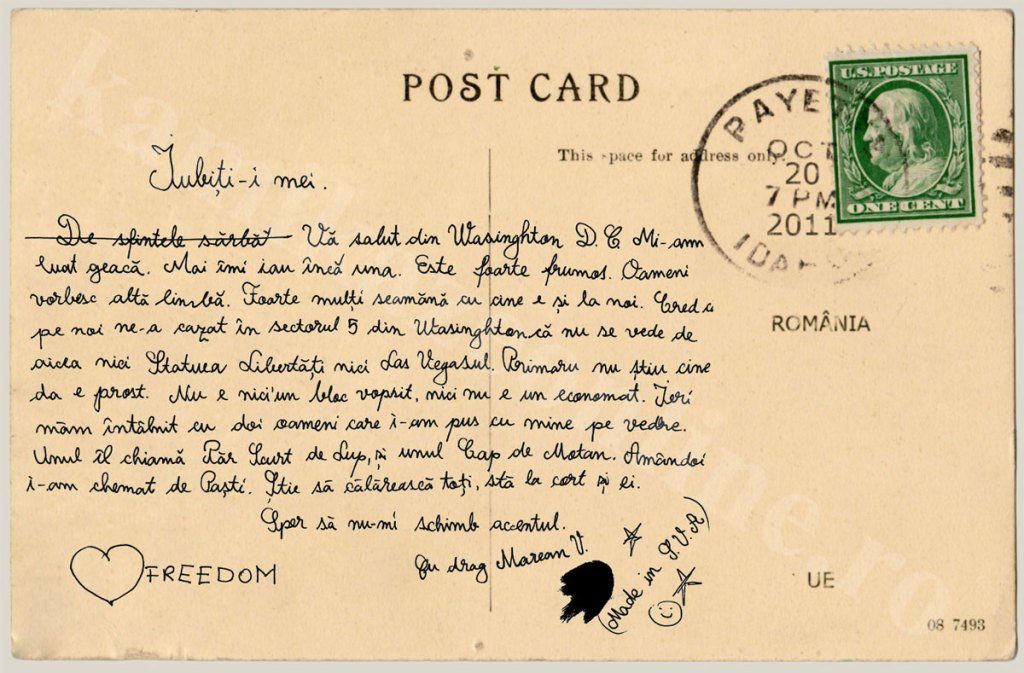 POST CARD
U.S. POSTAGE
ONE CENT
PAYE
OCT
20
7 PM
2011
IDAHO
This space for address only.
Iubiți-i mei.
De sfintele sărbăt Vă salut din Wasinghton D.C Mi-am
luat geacă. Mai îmi iau încă una. Este foarte frumos. Oameni
vorbesc altă limbă. Foarte mulți seamănă cu cine e și la noi. Cred că
pe noi ne-a cazat în sectorul 5 din Wasinghton că nu se vede de
aicea nici Statuea Libertăți nici Las Vegasul. Primaru nu știu cine
da e prost. Nu e nici'un bloc vopsit, nici nu e un economat. Ieri
măm întâlnit cu doi oameni care i-am pus cu mine pe vedere.
Unul îl chiamă Păr Scurt de Lup, și unul Cap de Motan. Amândoi
i-am chemat de Paști. Știe să călărească toți, stă la cort și ei.
Sper să nu-mi schimb accentul.
Cu drag Marean V.
(Made in S.V.A)
FREEDOM
ROMÂNIA
UE
08 7493